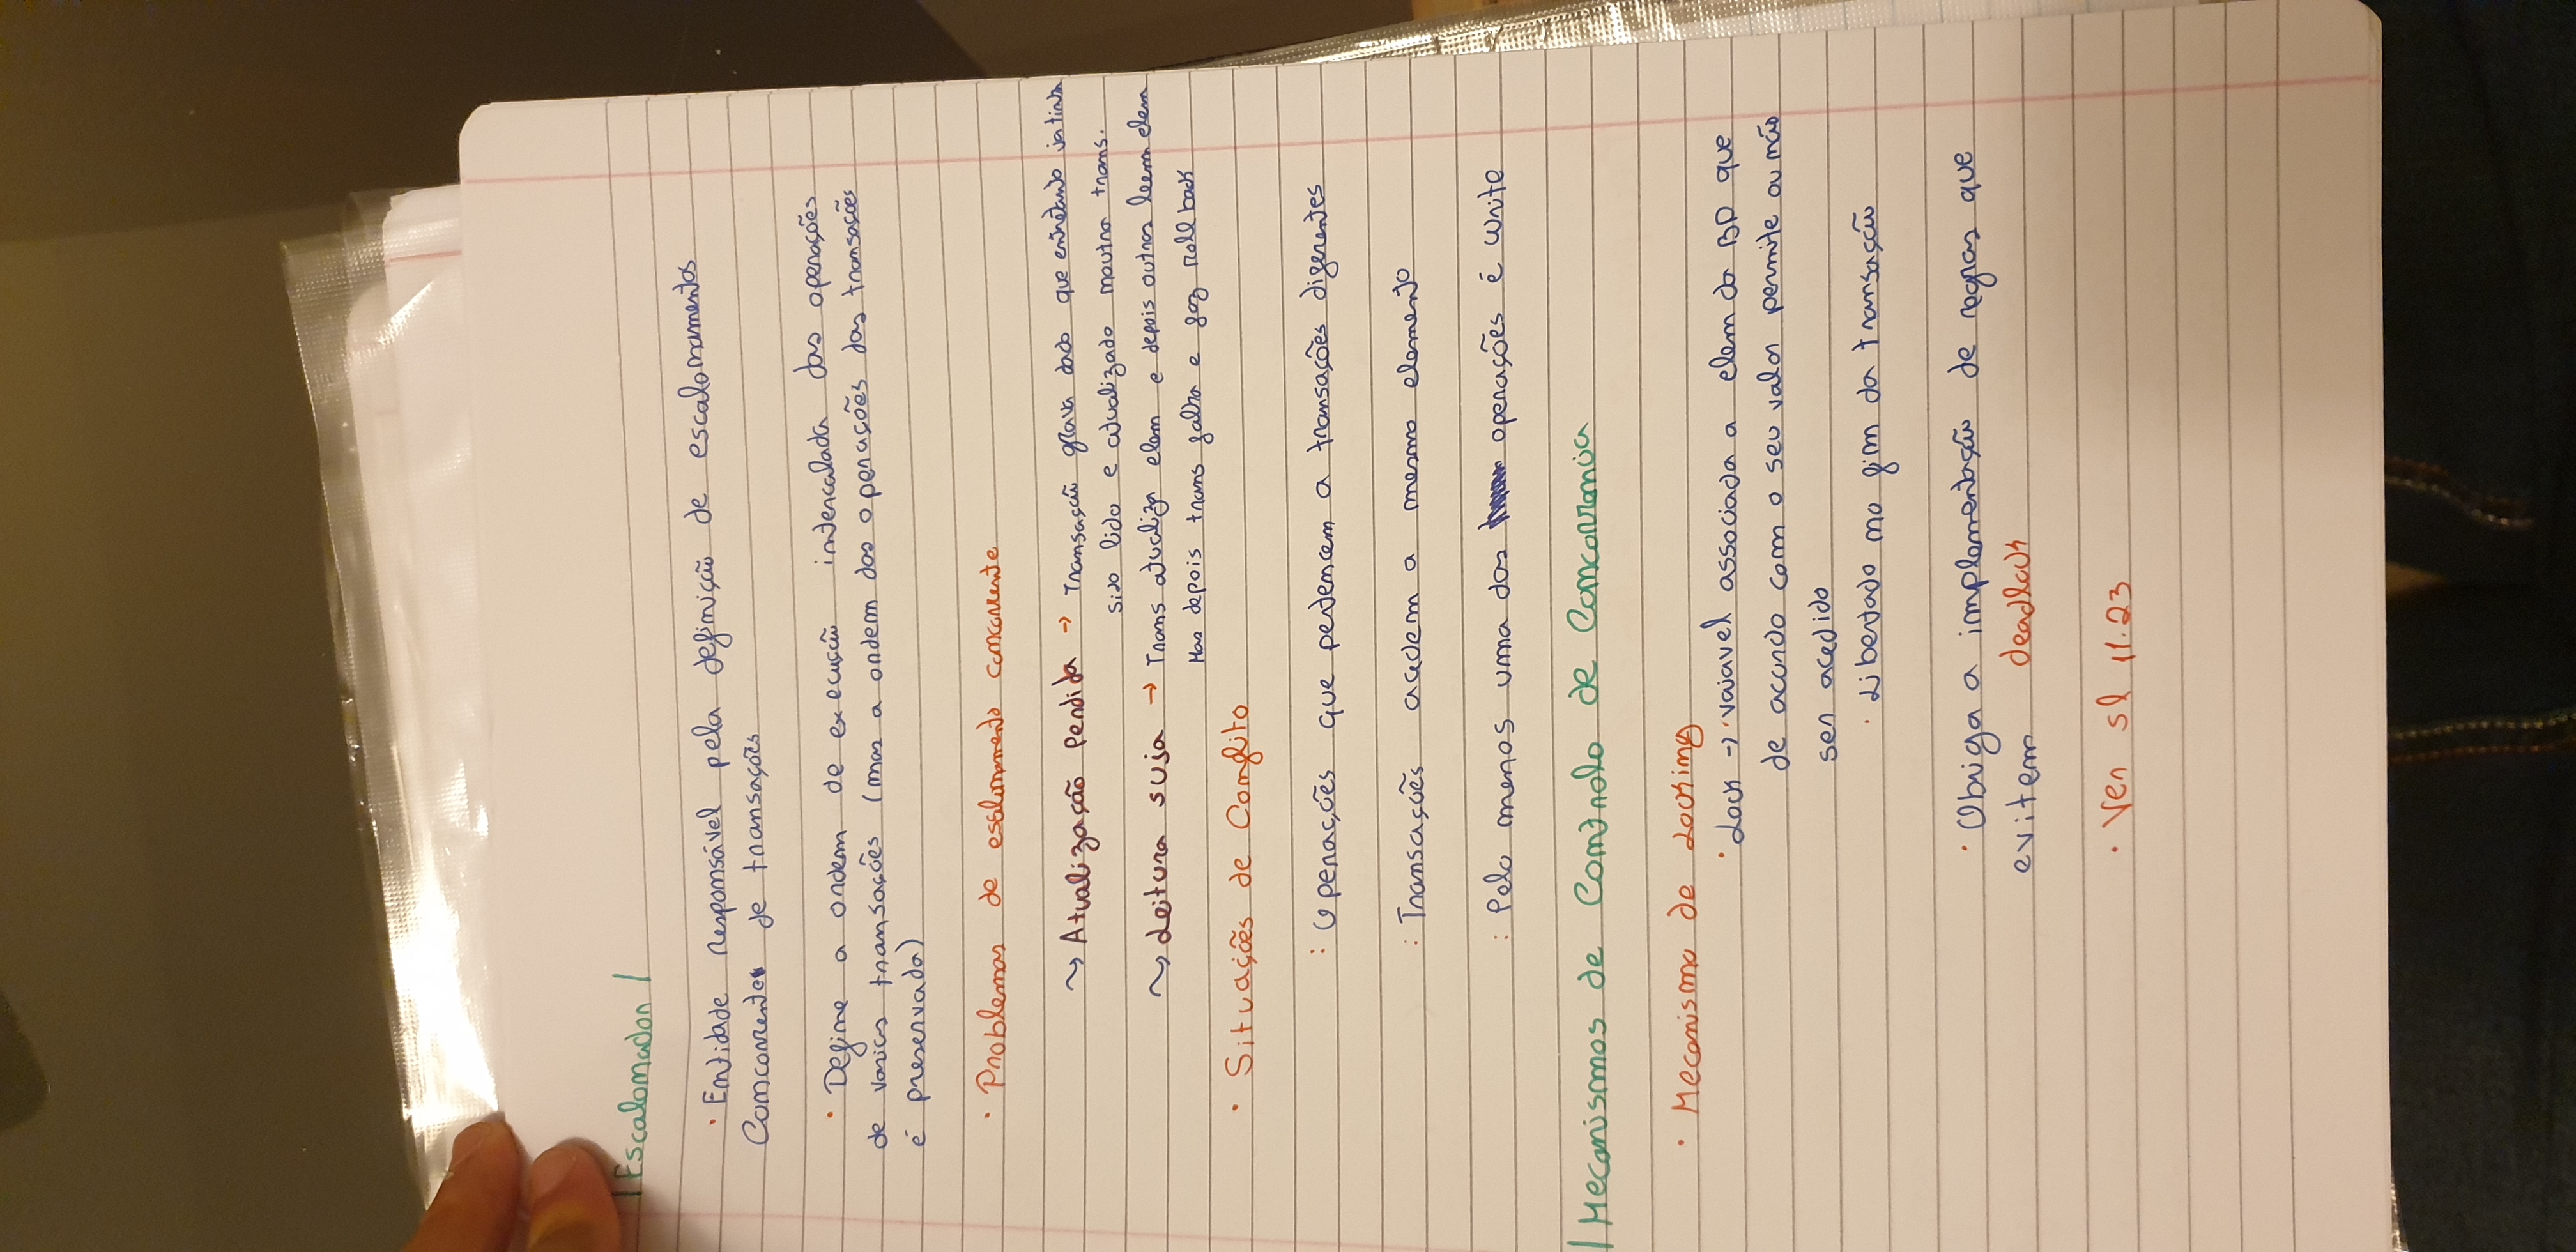 | Escalonador |
· Entidade responsável pela definição de escalonamentos
Concorrentes de transações
· Define a ordem de execução intercalada das operações
de varias transações (mas a ordem das operações das transações
é preservada)
· Problemas de escalonamento concorrente
~> Atualização Perdida -> Transação grava dado que entretanto ja tinha
sido lido e atualizado noutra trans.
~> Leitura suja -> Trans atualiza elem e depois outras leem elem
Mas depois trans falha e faz rollback
· Situações de Conflito
: Operações que pertencem a transações diferentes
: Transações acedem a mesmo elemento
: Pelo menos uma das operações é write
| Mecanismos de Controlo de Concorrencia
· Mecanismo de Locking
· Lock -> · vaiavel associada a elem da BD que
de acordo com o seu valor permite ou não
ser acedido
· Libertado no fim da transação
· Obriga a implementação de regras que
evitem deadlock
· Ver sl 11.23